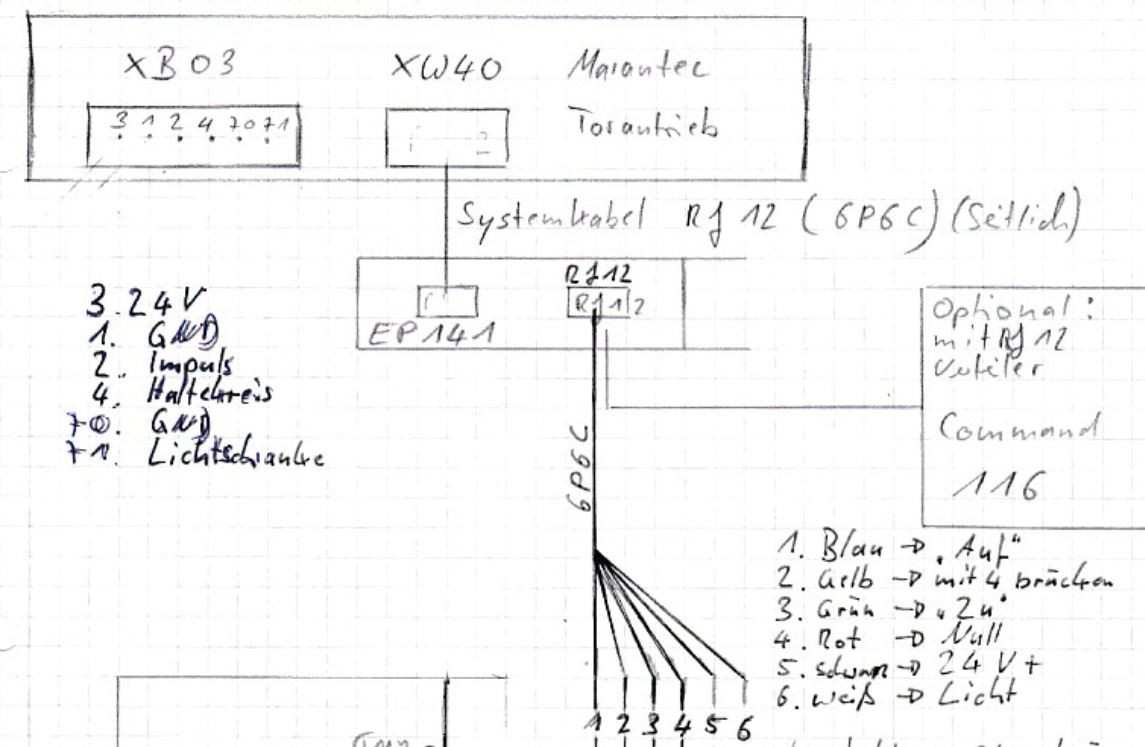 XB03
XW40
Marantec
3 1 2 4 70 71
2
Torantrieb
Systemkabel RJ 12 (6P6C) (Seitlich)
RJ12
RJ12
EP141
3. 24V
1. GND
2. Impuls
4. Haltekreis
70. GND
71. Lichtschranke
Optional:
mit RJ 12
Verteiler
Command
116
6P6C
1. Blau → „Auf“
2. Gelb → mit 4 brücken
3. Grün → „Zu“
4. Rot → Null
5. schwarz → 24 V+
6. weiß → Licht
1 2 3 4 5 6